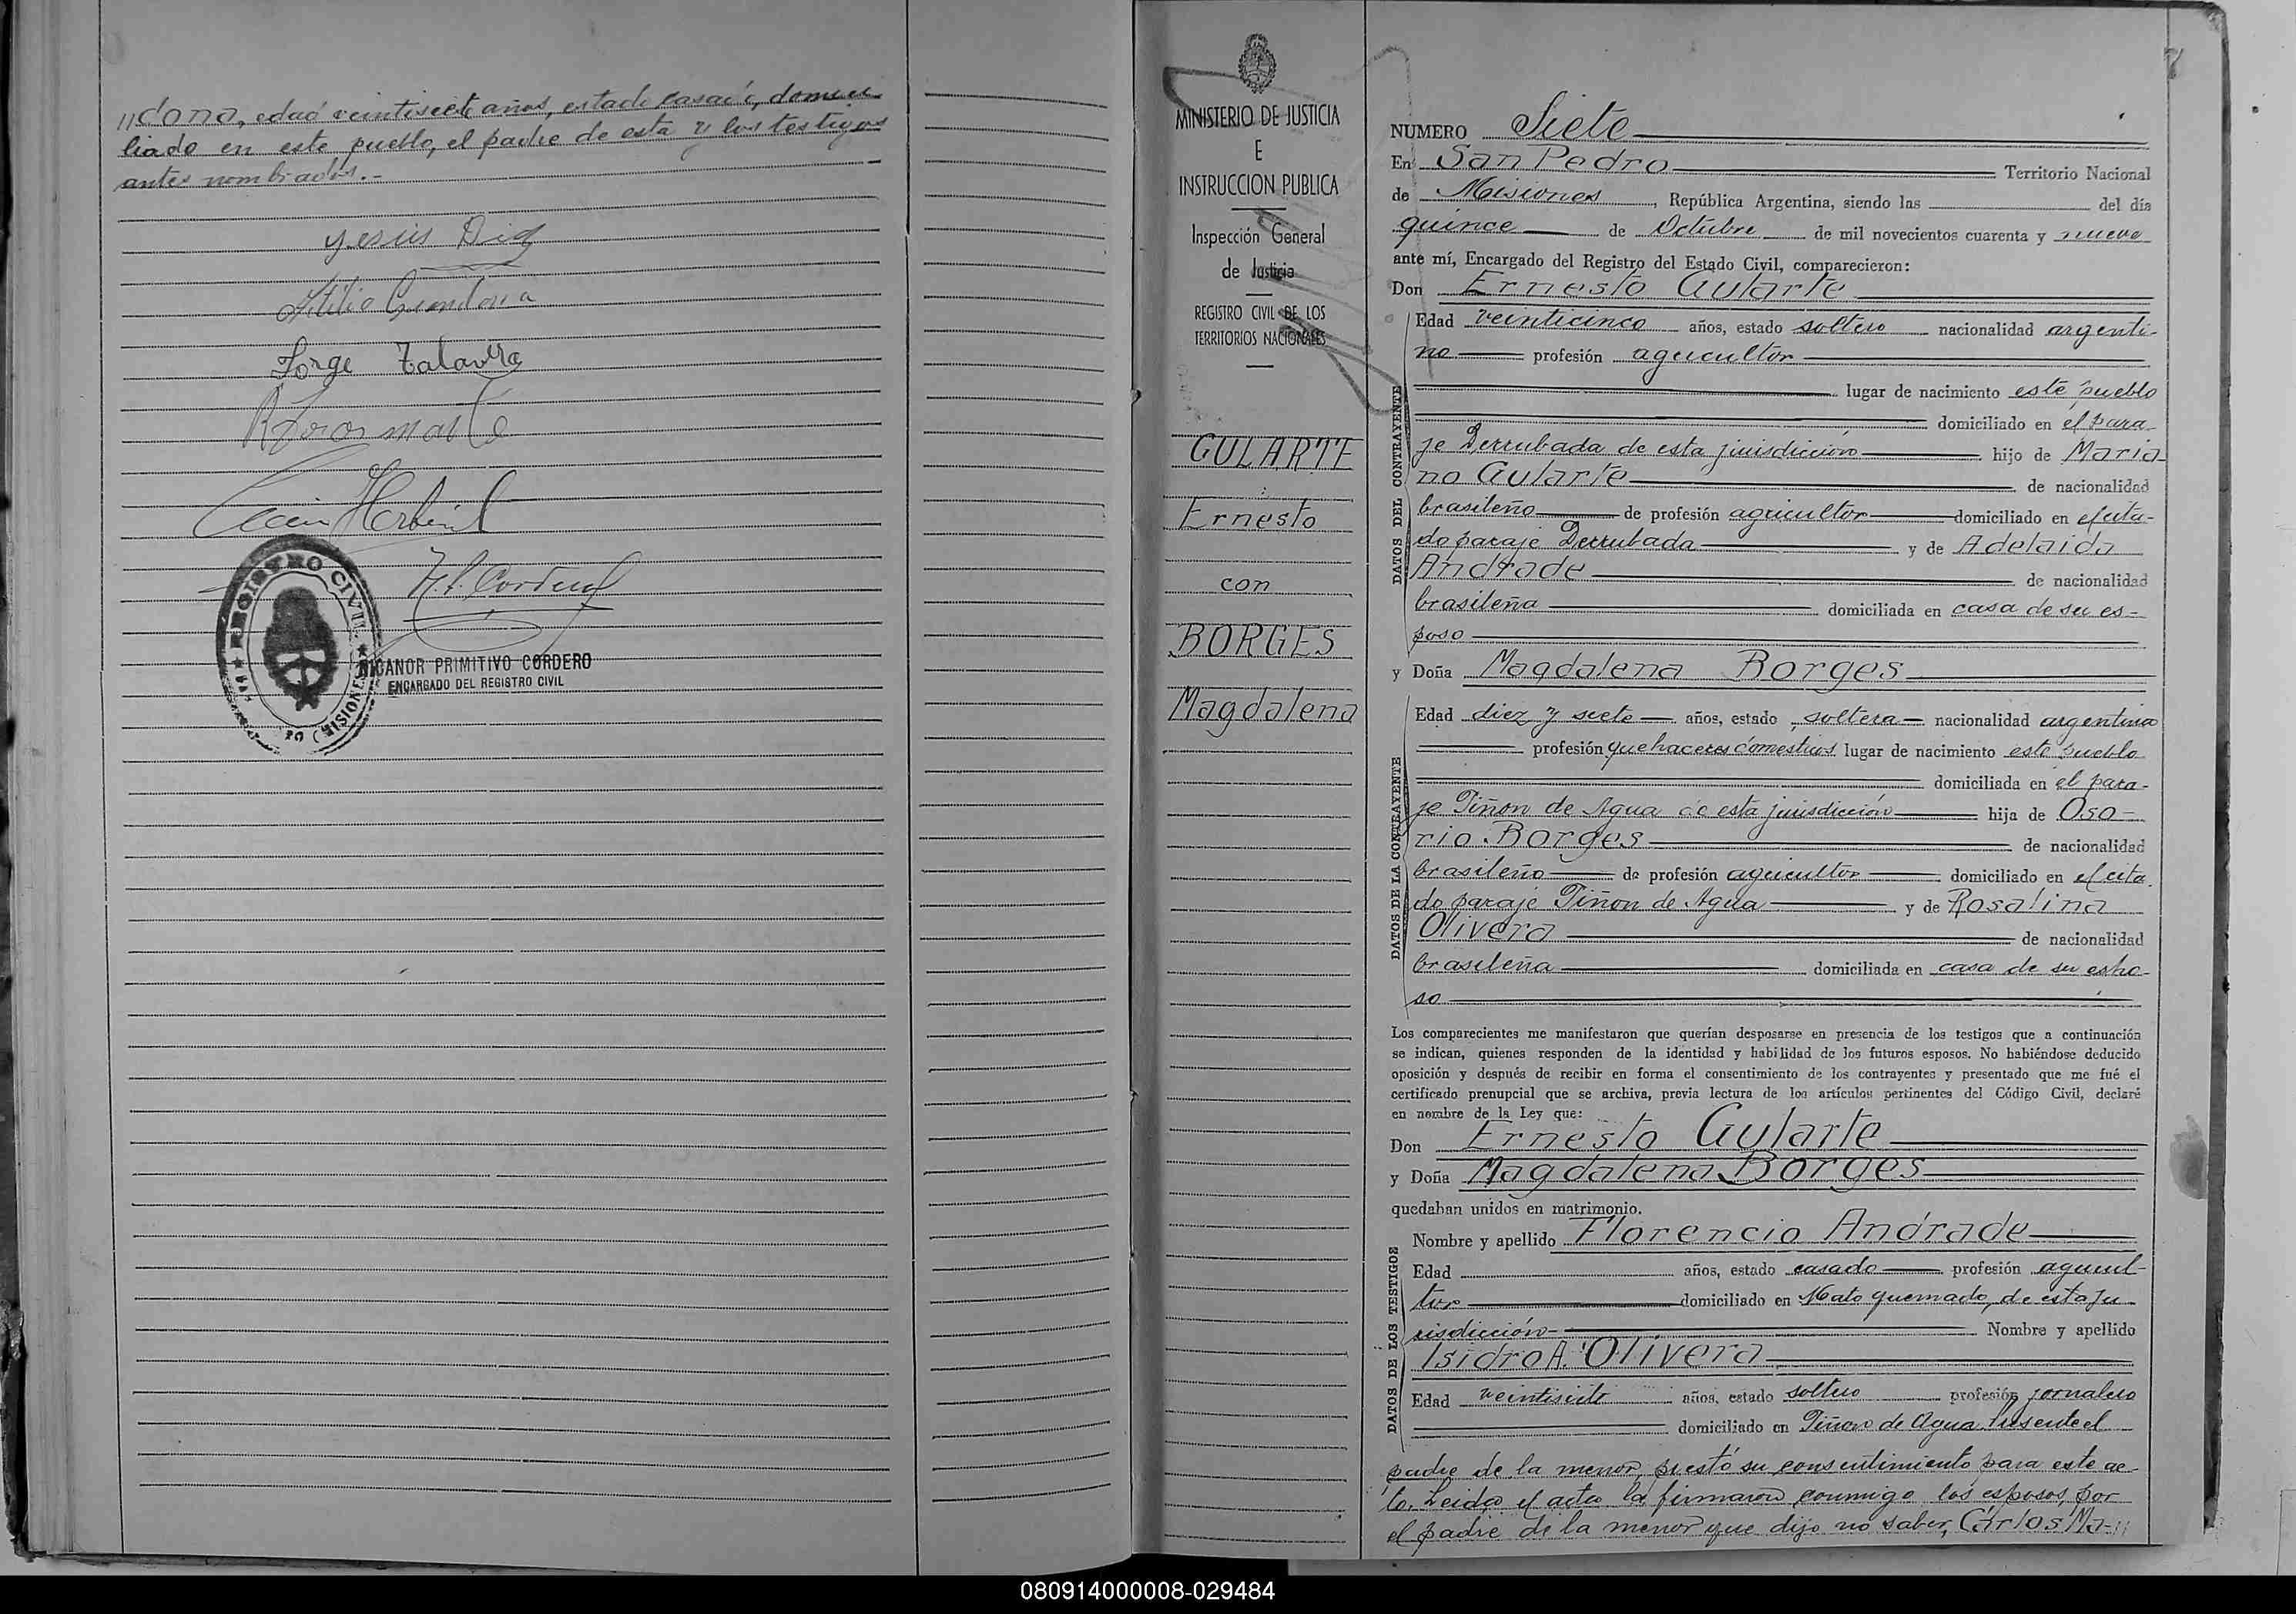 //dona, edad veintisiete años, estado casado, domici
liado en este pueblo, el padre de esta y los testigos
antes nombrados.-
Jorge Talavera
REGISTRO CIVIL
MISIONES
NICANOR PRIMITIVO CORDERO
ENCARGADO DEL REGISTRO CIVIL
MINISTERIO DE JUSTICIA
E
INSTRUCCION PUBLICA
Inspección General
de Justicia
REGISTRO CIVIL DE LOS
TERRITORIOS NACIONALES
GULARTE
Ernesto
con
BORGES
Magdalena
7
NUMERO Siete
En San Pedro Territorio Nacional
de Misiones, República Argentina, siendo las del día
quince de Octubre de mil novecientos cuarenta y nueve
ante mí, Encargado del Registro del Estado Civil, comparecieron:
Don Ernesto Gularte
DATOS DEL CONTRAYENTE
Edad veinticinco años, estado soltero nacionalidad argenti-
no profesión agricultor
lugar de nacimiento este pueblo
domiciliado en el para-
je Derrubada de esta jurisdicción hijo de Maria-
no Gularte de nacionalidad
brasileño de profesión agricultor domiciliado en el cita-
do paraje Derrubada y de Adelaida
Andrade de nacionalidad
brasileña domiciliada en casa de su es-
poso
y Doña Magdalena Borges
DATOS DE LA CONTRAYENTE
Edad diez y siete años, estado soltera nacionalidad argentina
profesión quehaceres domesticos lugar de nacimiento este pueblo
domiciliada en el para-
je Piñon de Agua de esta jurisdicción hija de Oso-
rio Borges de nacionalidad
brasileño de profesión agricultor domiciliado en el cita
do paraje Piñon de Agua y de Rosalina
Olivera de nacionalidad
brasileña domiciliada en casa de su espo-
so
Los comparecientes me manifestaron que querían desposarse en presencia de los testigos que a continuación
se indican, quienes responden de la identidad y habilidad de los futuros esposos. No habiéndose deducido
oposición y después de recibir en forma el consentimiento de los contrayentes y presentado que me fué el
certificado prenupcial que se archiva, previa lectura de los artículos pertinentes del Código Civil, declaré
en nombre de la Ley que:
Don Ernesto Gularte
y Doña Magdalena Borges
quedaban unidos en matrimonio.
DATOS DE LOS TESTIGOS
Nombre y apellido Florencio Andrade
Edad años, estado casado profesión agricul-
tor domiciliado en Mato quemado, de esta ju
risdicción- Nombre y apellido
Isidro A. Olivera
Edad veintisiete años, estado soltero profesión jornalero
domiciliado en Piñon de Agua. Presente el
padre de la menor, prestó su consentimiento para este ac-
to. Leida el acta la firmaron conmigo los esposos, por
el padre de la menor que dijo no saber, Carlos Ma-//
080914000008-029484